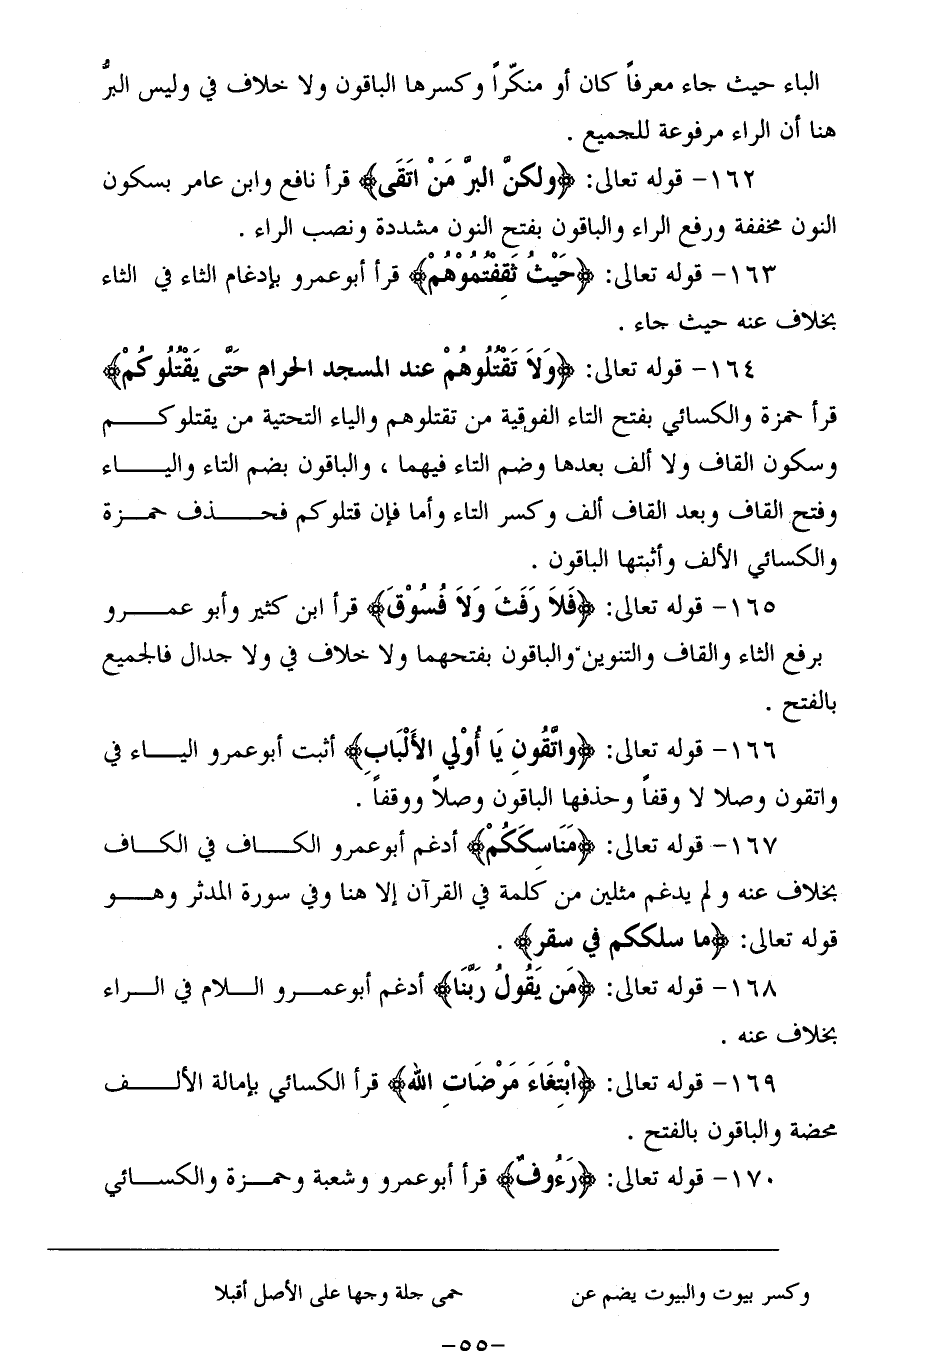 الباء حيث جاء معرفاً كان أو منكّراً وكسرها الباقون ولا خلاف في وليس البرُّ
هنا أن الراء مرفوعة للجميع .
١٦٢- قوله تعالى: ﴿ولكنَّ البرَّ مَنْ اتَقَى﴾ قرأ نافع وابن عامر بسكون
النون مخففة ورفع الراء والباقون بفتح النون مشددة ونصب الراء .
١٦٣- قوله تعالى: ﴿حَيْثُ ثَقِفْتُمُوْهُمْ﴾ قرأ أبوعمرو بإدغام الثاء في الثاء
بخلاف عنه حيث جاء .
١٦٤- قوله تعالى: ﴿وَلَا تَقْتُلُوهُمْ عند المسجد الحرام حَتَّى يَقْتُلُوكُمْ﴾
قرأ حمزة والكسائي بفتح التاء الفوقية من تقتلوهم والياء التحتية من يقتلوكـــم
وسكون القاف ولا ألف بعدها وضم التاء فيهما ، والباقون بضم التاء واليـــاء
وفتح القاف وبعد القاف ألف وكسر التاء وأما فإن قتلوكم فحـــذف حمـــزة
والكسائي الألف وأثبتها الباقون .
١٦٥- قوله تعالى: ﴿فَلَا رَفَثَ وَلَا فُسُوْقَ﴾ قرأ ابن كثير وأبو عمـــرو
برفع الثاء والقاف والتنوين والباقون بفتحهما ولا خلاف في ولا جدال فالجميع
بالفتح .
١٦٦- قوله تعالى: ﴿واتَّقُونِ يَا أُوْلي الأَلْبَابِ﴾ أثبت أبوعمرو اليـــاء في
واتقون وصلا لا وقفاً وحذفها الباقون وصلاً ووقفاً .
١٦٧- قوله تعالى: ﴿مَنَاسِكَكُمْ﴾ أدغم أبوعمرو الكـــاف في الكـــاف
بخلاف عنه ولم يدغم مثلين من كلمة في القرآن إلا هنا وفي سورة المدثر وهـــو
قوله تعالى: ﴿ما سلككم في سقر﴾ .
١٦٨- قوله تعالى: ﴿مَن يَقُولُ رَبَّنَا﴾ أدغم أبوعمـــرو الـــلام في الـــراء
بخلاف عنه .
١٦٩- قوله تعالى: ﴿ابْتِغَاءَ مَرْضَاتِ الله﴾ قرأ الكسائي بإمالة الألـــف
محضة والباقون بالفتح .
١٧٠- قوله تعالى: ﴿رَءُوفٌ﴾ قرأ أبوعمرو وشعبة وحمـــزة والكســـائي
وكسر بيوت والبيوت يضم عن حمى جلة وجها على الأصل أقبلا
-٥٥-